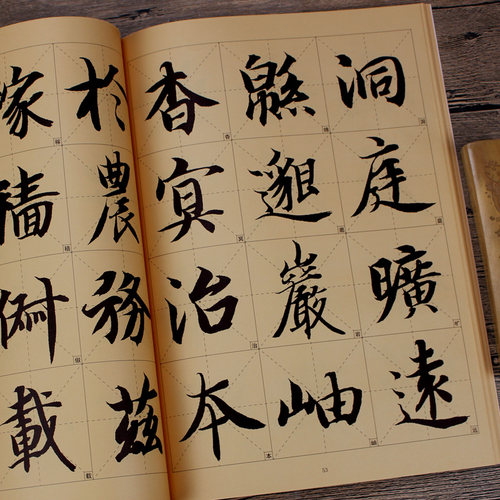 洞庭曠遠
緜邈巖岫
杳冥治本
於農務茲
稼穡俶載
53